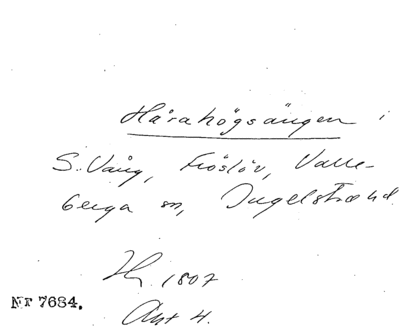 Hårahögsängen i
S. Vång, Fröslöv, Valle-
berga sn, Ingelstad hd
Hr. 1807
Akt 4.
Nr 7684.